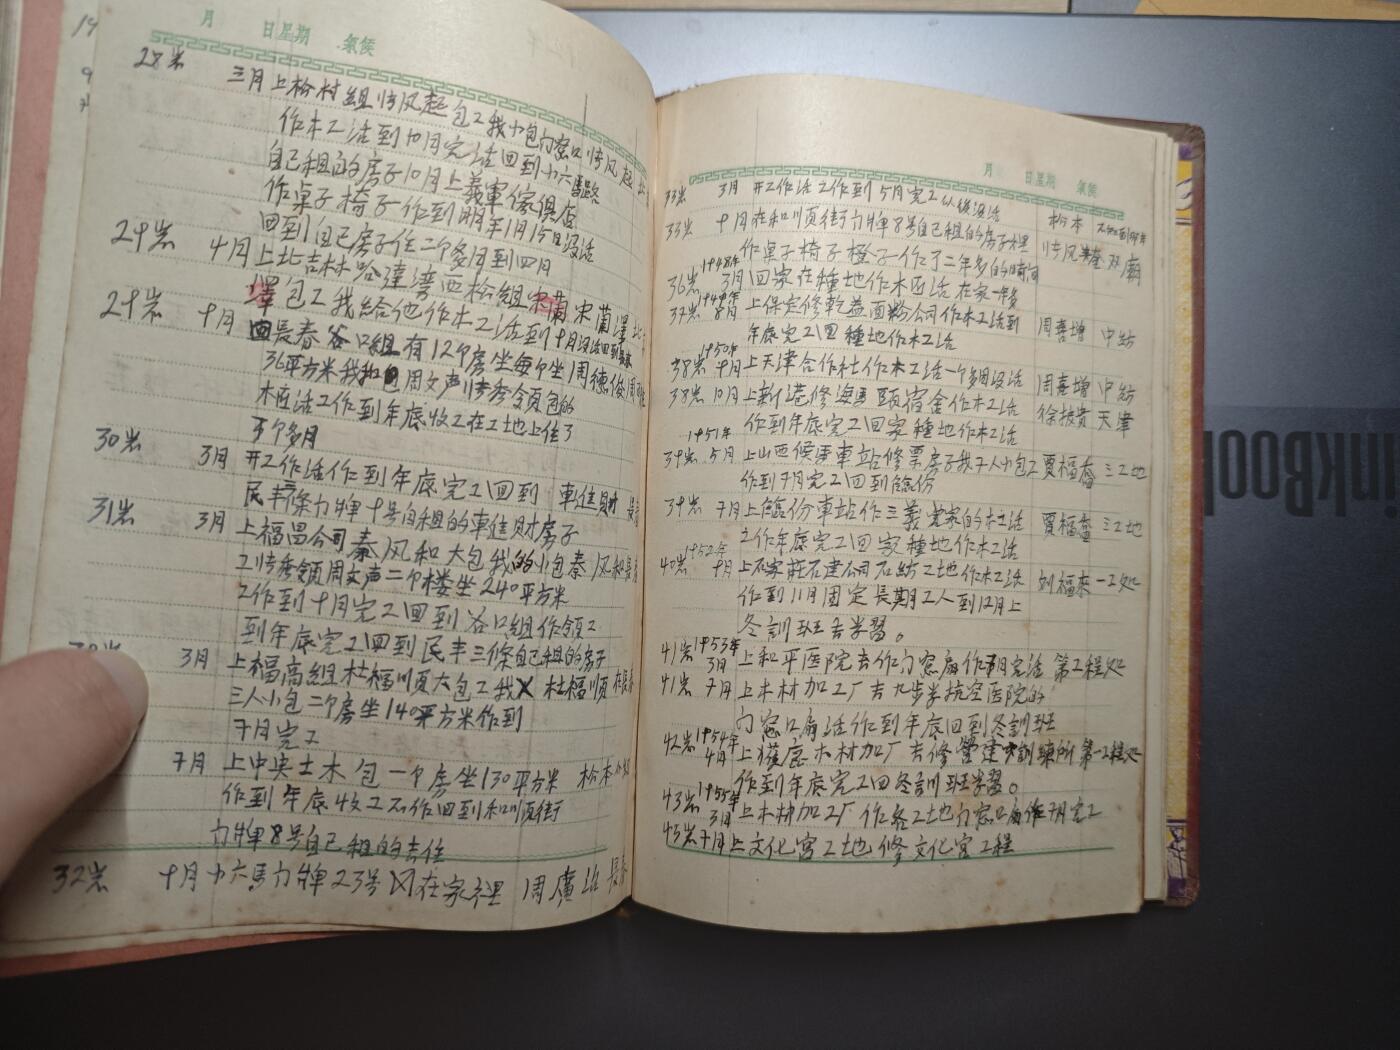 月 日 星期 氣候
28岁 三月上松村組 包工我小包门窓口
作木工活到10月完活回到十六馬路
自己租的房子10月上義軍傢俱店
作桌子椅子作到明年1月15日没活
回到自己房子住二个多月到四月
29岁 4月上北吉林哈達湾西松組宋蘭 宋蘭澤
澤包工我給他作木工活到十月没活回到長春
29岁 十月 回長春谷口組有12个房坐每个坐周德俊
36平方米我和 周文声 秀領包的
木匠活工作到年底收工在工地上住了
3个多月
30岁 3月 开工作活作到年底完工回到 車進財
民丰 條力牌十号自租的車進財房子
31岁 3月 上福昌公司秦风和大包我的小包秦风和
秀領周文声二个楼坐240平方米
工作到十月完工回到谷口組作領工
到年底完工回到民丰三條自己租的房子
3月 上福高組杜福順大包工我 杜福順 在長春
三人小包二个房坐140平方米作到
7月完工
7月 上中央土木包一个房坐130平方米 松本
作到年底收工不作回到和順街
力牌8号自己租的去住
32岁 十月十六馬力牌23号 在家裡 周廣 長春
月 日 星期 氣候
33岁 3月 开工作活工作到5月完工以後没活
33岁 十月在和順街力牌8号自己租的房子裡 松本
作桌子椅子橙子作了二年多的時间 双廟
36岁 1948年 3月 回家在種地作木匠活在家一年多
37岁 1949年 8月 上保定修乾益面粉公司作木工活到 周喜增 中紡
年底完工回種地作木工活
38岁 1950年 9月上天津合作社作木工活一个多月没活 周喜增 中紡
38岁 10月 上新港修海員 宿舍作木工活 徐振貴 天津
作到年底完工回家種地作木工活
39岁 1951年 5月 上山西候馬車站修票房子我于人小包工 賈福奎 三工地
作到7月完工回到臨份
39岁 7月上臨份車站作三義 家的木工活 賈福奎 三工地
工作年底完工回家種地作木工活
40岁 1952年 9月 上石家莊石建公司石紡工地作木工活 刘福来 一工处
作到11月固定長期工人到12月上
冬訓班去学習。
41岁 1953年 3月 上和平医院去作门窓扇作7月完活 第二工程处
41岁 7月 上木材加工厂去九步半抗定医院的
门窓口扇活作到年底回到冬訓班
42岁 1954年 4月 上獲鹿木材加厂去修營建 訓練所 第一工程处
作到年底完工回冬訓班学習。
43岁 1955年 3月 上木材加工厂作各工地门窓口扇作7月完工
43岁 7月上文化宮工地修文化宮工程